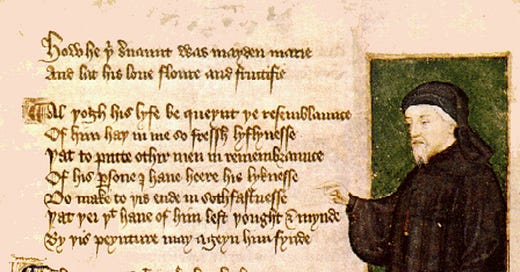 How he þi seruaunt was mayden marie
And lat his loue floure and fructifie
Al þogh his lyfe be queynt þe resemblaunce
Of him haþ in me so fressh lyflynesse
Þat to putte othir men in remembraunce
Of his ꝑsone I haue heere his lyknesse
Do make to þis ende in sothfastnesse
Þat þei þt haue of him left þought & mynde
By þis peynture may ageyn him fynde